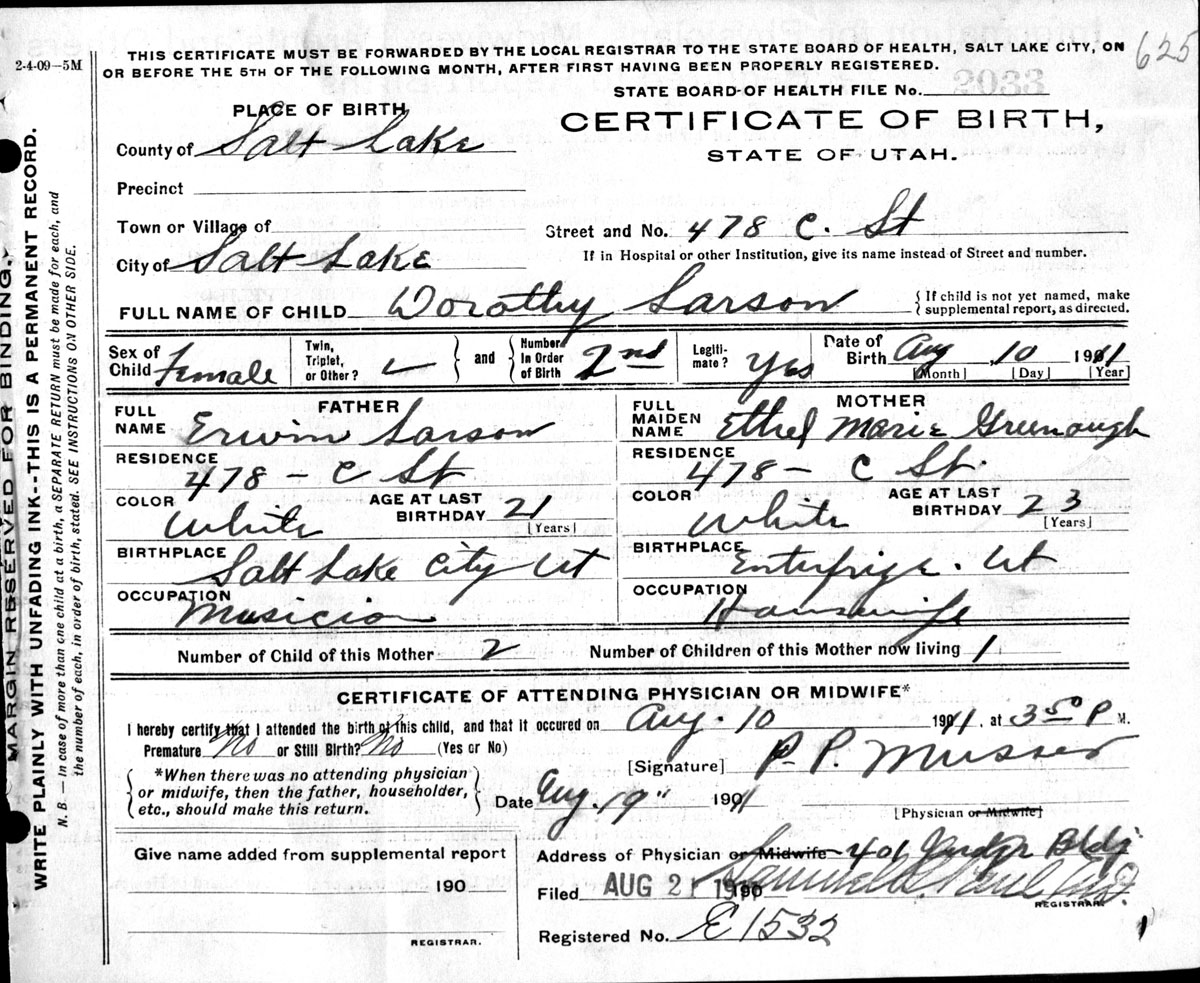 2-4-09-5M
THIS CERTIFICATE MUST BE FORWARDED BY THE LOCAL REGISTRAR TO THE STATE BOARD OF HEALTH, SALT LAKE CITY, ON
OR BEFORE THE 5TH OF THE FOLLOWING MONTH, AFTER FIRST HAVING BEEN PROPERLY REGISTERED.
625
STATE BOARD OF HEALTH FILE No. 2033
PLACE OF BIRTH
CERTIFICATE OF BIRTH,
STATE OF UTAH.
County of Salt Lake
Precinct
Town or Village of
Street and No. 478 C. St
City of Salt Lake
If in Hospital or other Institution, give its name instead of Street and number.
FULL NAME OF CHILD Dorothy Larson
{If child is not yet named, make
supplemental report, as directed.
Sex of Child Female
Twin, Triplet, or Other?
and
Number In Order of Birth 2nd
Legiti- mate? Yes
Date of Birth Aug 10 1911
[Month] [Day] [Year]
FATHER
FULL NAME Erwin Larson
RESIDENCE 478 - C St
COLOR White
AGE AT LAST BIRTHDAY 21
[Years]
BIRTHPLACE Salt Lake City Ut
OCCUPATION Musician
MOTHER
FULL MAIDEN NAME Ethel Marie Greenough
RESIDENCE 478 - C St.
COLOR White
AGE AT LAST BIRTHDAY 23
[Years]
BIRTHPLACE Enterprize. Ut
OCCUPATION Housewife
Number of Child of this Mother 2
Number of Children of this Mother now living 1
CERTIFICATE OF ATTENDING PHYSICIAN OR MIDWIFE*
I hereby certify that I attended the birth of this child, and that it occured on Aug. 10 1911, at 3 50 P M.
Premature No or Still Birth? No (Yes or No)
*When there was no attending physician
or midwife, then the father, householder,
etc., should make this return.
[Signature] P. P. Musser
Date Aug. 19" 1911
[Physician or Midwife]
Give name added from supplemental report
190
REGISTRAR.
Address of Physician or Midwife 401 Judge Bldg
Filed AUG 21 19
REGISTRAR.
Registered No. E1532
MARGIN RESERVED FOR BINDING.
WRITE PLAINLY WITH UNFADING INK--THIS IS A PERMANENT RECORD.
N. B. — In case of more than one child at a birth, a SEPARATE RETURN must be made for each, and
the number of each, in order of birth, stated. SEE INSTRUCTIONS ON OTHER SIDE.